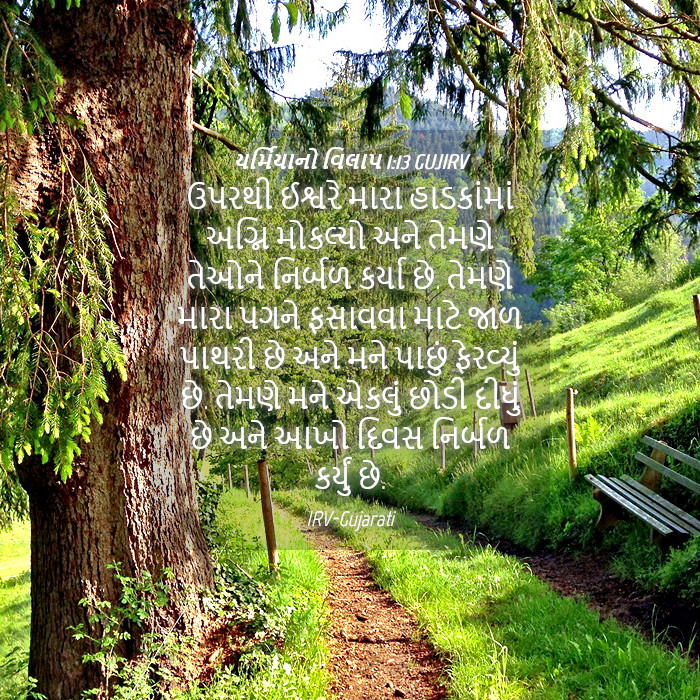 યર્મિયાનો વિલાપ 1:13 GUJIRV
ઉપરથી ઈશ્વરે મારા હાડકાંમાં
અગ્નિ મોકલ્યો અને તેમણે
તેઓને નિર્બળ કર્યાં છે. તેમણે
મારા પગને ફસાવવા માટે જાળ
પાથરી છે અને મને પાછું ફેરવ્યું
છે. તેમણે મને એકલું છોડી દીધું
છે અને આખો દિવસ નિર્બળ
કર્યું છે.
IRV-Gujarati